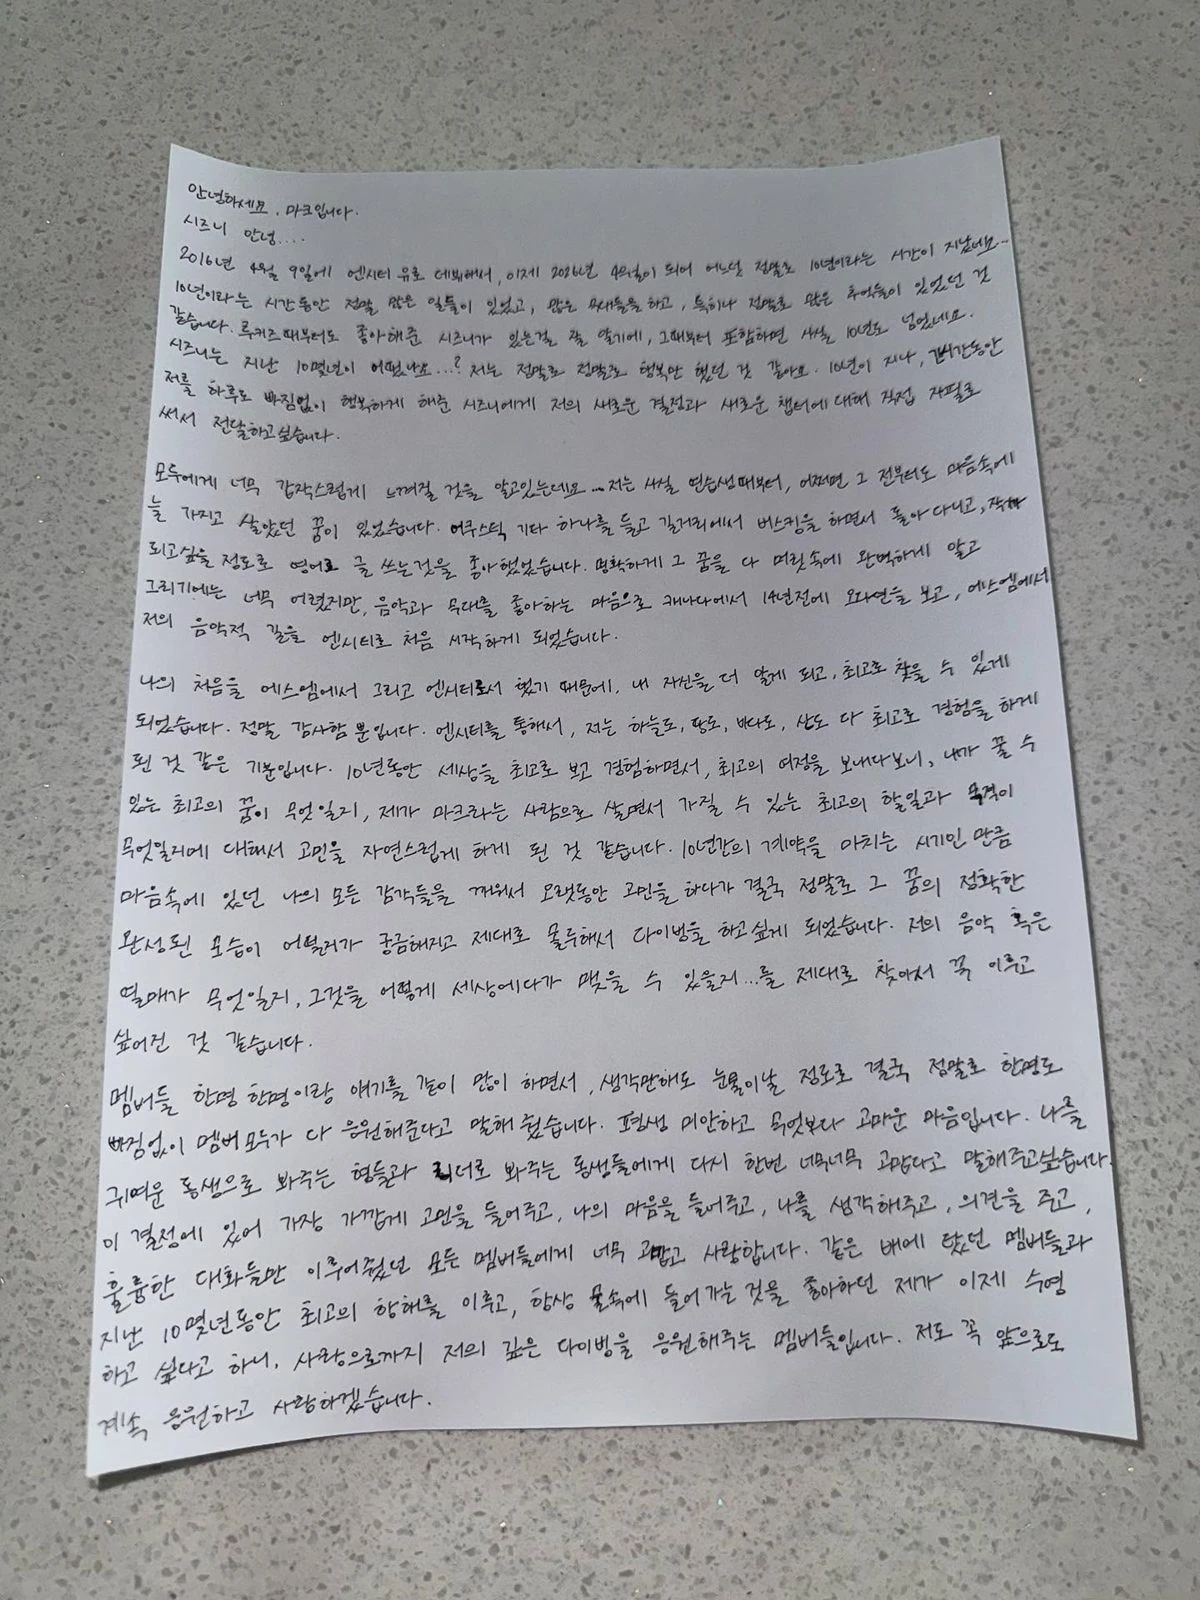 안녕하세요. 마크입니다.
시즈니 안녕....
2016년 4월 9일에 엔시티 유로 데뷔해서, 이제 2026년 4월이 되어 어느덧 정말로 10년이라는 시간이 지났네요...
10년이라는 시간동안 정말 많은 일들이 있었고, 많은 무대들을 하고, 특히나 정말로 많은 추억들이 있었던 것
같습니다. 루키즈때부터도 좋아해준 시즈니가 있는걸 잘 알기에, 그때부터 포함하면 사실 10년도 넘었네요.
시즈니는 지난 10몇년이 어땠나요...? 저는 정말로 정말로 행복만 했던 것 같아요. 10년이 지나, 긴시간동안
저를 하루도 빠짐없이 행복하게 해준 시즈니에게 저의 새로운 결정과 새로운 챕터에 대해 직접 자필로
써서 전달하고싶습니다.
모두에게 너무 갑작스럽게 느껴질 것을 알고있는데요... 저는 사실 연습생때부터, 어쩌면 그 전부터도 마음속에
늘 가지고 살았던 꿈이 있었습니다. 어쿠스틱 기타 하나를 들고 길거리에서 버스킹을 하면서 돌아다니고, 작가
되고싶을 정도로 영어로 글 쓰는것을 좋아했었습니다. 명확하게 그 꿈을 다 머릿속에 완벽하게 알고
그리기에는 너무 어렸지만, 음악과 무대를 좋아하는 마음으로 캐나다에서 14년전에 오디션을 보고, 에스엠에서
저의 음악적 길을 엔시티로 처음 시작하게 되었습니다.
나의 처음을 에스엠에서 그리고 엔시티로서 했기 때문에, 내 자신을 더 알게 되고, 최고로 찾을 수 있게
되었습니다. 정말 감사함 뿐입니다. 엔시티를 통해서, 저는 하늘도, 땅도, 바다도, 산도 다 최고로 경험을 하게
된 것 같은 기분입니다. 10년동안 세상을 최고로 보고 경험하면서, 최고의 여정을 보내다보니, 내가 꿀 수
있는 최고의 꿈이 무엇일지, 제가 마크라는 사람으로 살면서 가질 수 있는 최고의 할일과 목적이
무엇일지에 대해서 고민을 자연스럽게 하게 된 것 같습니다. 10년간의 계약을 마치는 시기인 만큼
마음속에 있던 나의 모든 감각들을 깨워서 오랫동안 고민을 하다가 결국 정말로 그 꿈의 정확한
완성된 모습이 어떨지가 궁금해지고 제대로 몰두해서 다이빙을 하고싶게 되었습니다. 저의 음악 혹은
열매가 무엇일지, 그것을 어떻게 세상에다가 맺을 수 있을지...를 제대로 찾아서 꼭 이루고
싶어진 것 같습니다.
멤버들 한명 한명이랑 얘기를 같이 많이 하면서, 생각만해도 눈물이날 정도로 결국 정말로 한명도
빠짐없이 멤버 모두가 다 응원해준다고 말해줬습니다. 평생 미안하고 무엇보다 고마운 마음입니다. 나를
귀여운 동생으로 봐주는 형들과 리더로 봐주는 동생들에게 다시 한번 너무너무 고맙다고 말해주고싶습니다.
이 결정에 있어 가장 가깝게 고민을 들어주고, 나의 마음을 들어주고, 나를 생각해주고, 의견을 주고,
훌륭한 대화들만 이루어줬던 모든 멤버들에게 너무 고맙고 사랑합니다. 같은 배에 탔던 멤버들과
지난 10몇년동안 최고의 항해를 이루고, 항상 물속에 들어가는 것을 좋아하던 제가 이제 수영
하고 싶다고 하니, 사랑으로까지 저의 깊은 다이빙을 응원해주는 멤버들입니다. 저도 꼭 앞으로도
계속 응원하고 사랑하겠습니다.